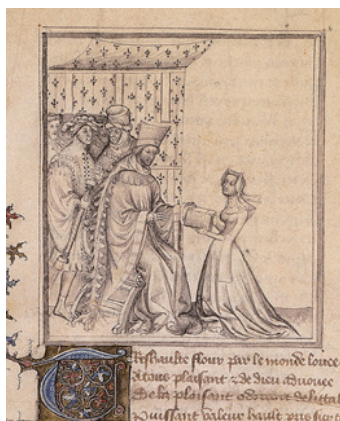 Tres haulte flour par le monde louee
A tous plaisant et de dieu advouee
De la plaisant odourant delitta
Puissant valeur hault pris sur t